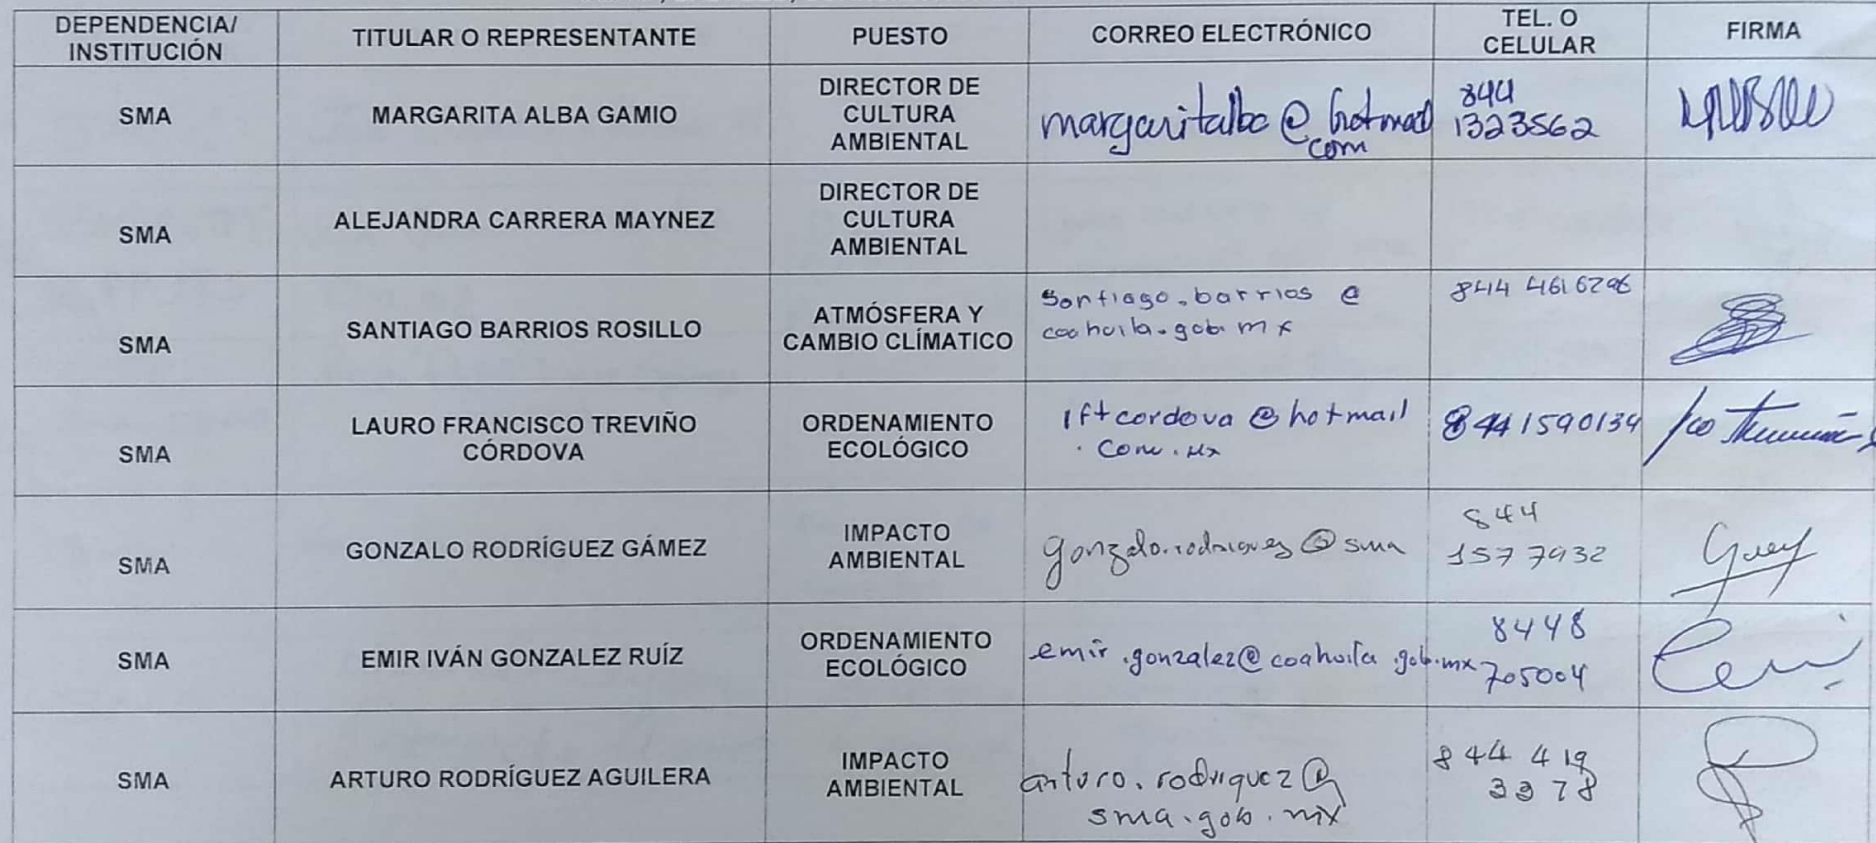 DEPENDENCIA/
INSTITUCIÓN
TITULAR O REPRESENTANTE
PUESTO
CORREO ELECTRÓNICO
TEL. O
CELULAR
FIRMA
SMA
MARGARITA ALBA GAMIO
DIRECTOR DE
CULTURA
AMBIENTAL
margaritalba@hotmail
com
844
1323562
SMA
ALEJANDRA CARRERA MAYNEZ
DIRECTOR DE
CULTURA
AMBIENTAL
SMA
SANTIAGO BARRIOS ROSILLO
ATMÓSFERA Y
CAMBIO CLÍMATICO
santiago.barrios @
coahuila.gob.mx
844 4616296
SMA
LAURO FRANCISCO TREVIÑO
CÓRDOVA
ORDENAMIENTO
ECOLÓGICO
lftcordova @ hotmail
.com.mx
8441590134
SMA
GONZALO RODRÍGUEZ GÁMEZ
IMPACTO
AMBIENTAL
gonzalo.rodriguez @ sma
844
157 7932
SMA
EMIR IVÁN GONZALEZ RUÍZ
ORDENAMIENTO
ECOLÓGICO
emir.gonzalez@coahuila.gob.mx
8448
705004
SMA
ARTURO RODRÍGUEZ AGUILERA
IMPACTO
AMBIENTAL
arturo.rodriguez@
sma.gob.mx
844 419
3378